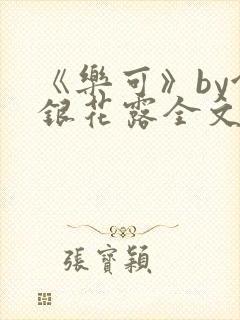 《樂可》by
銀花露全文
張寶穎